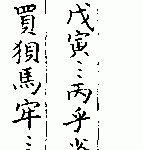 戊寅〻丙乎
買狽馬牢〻